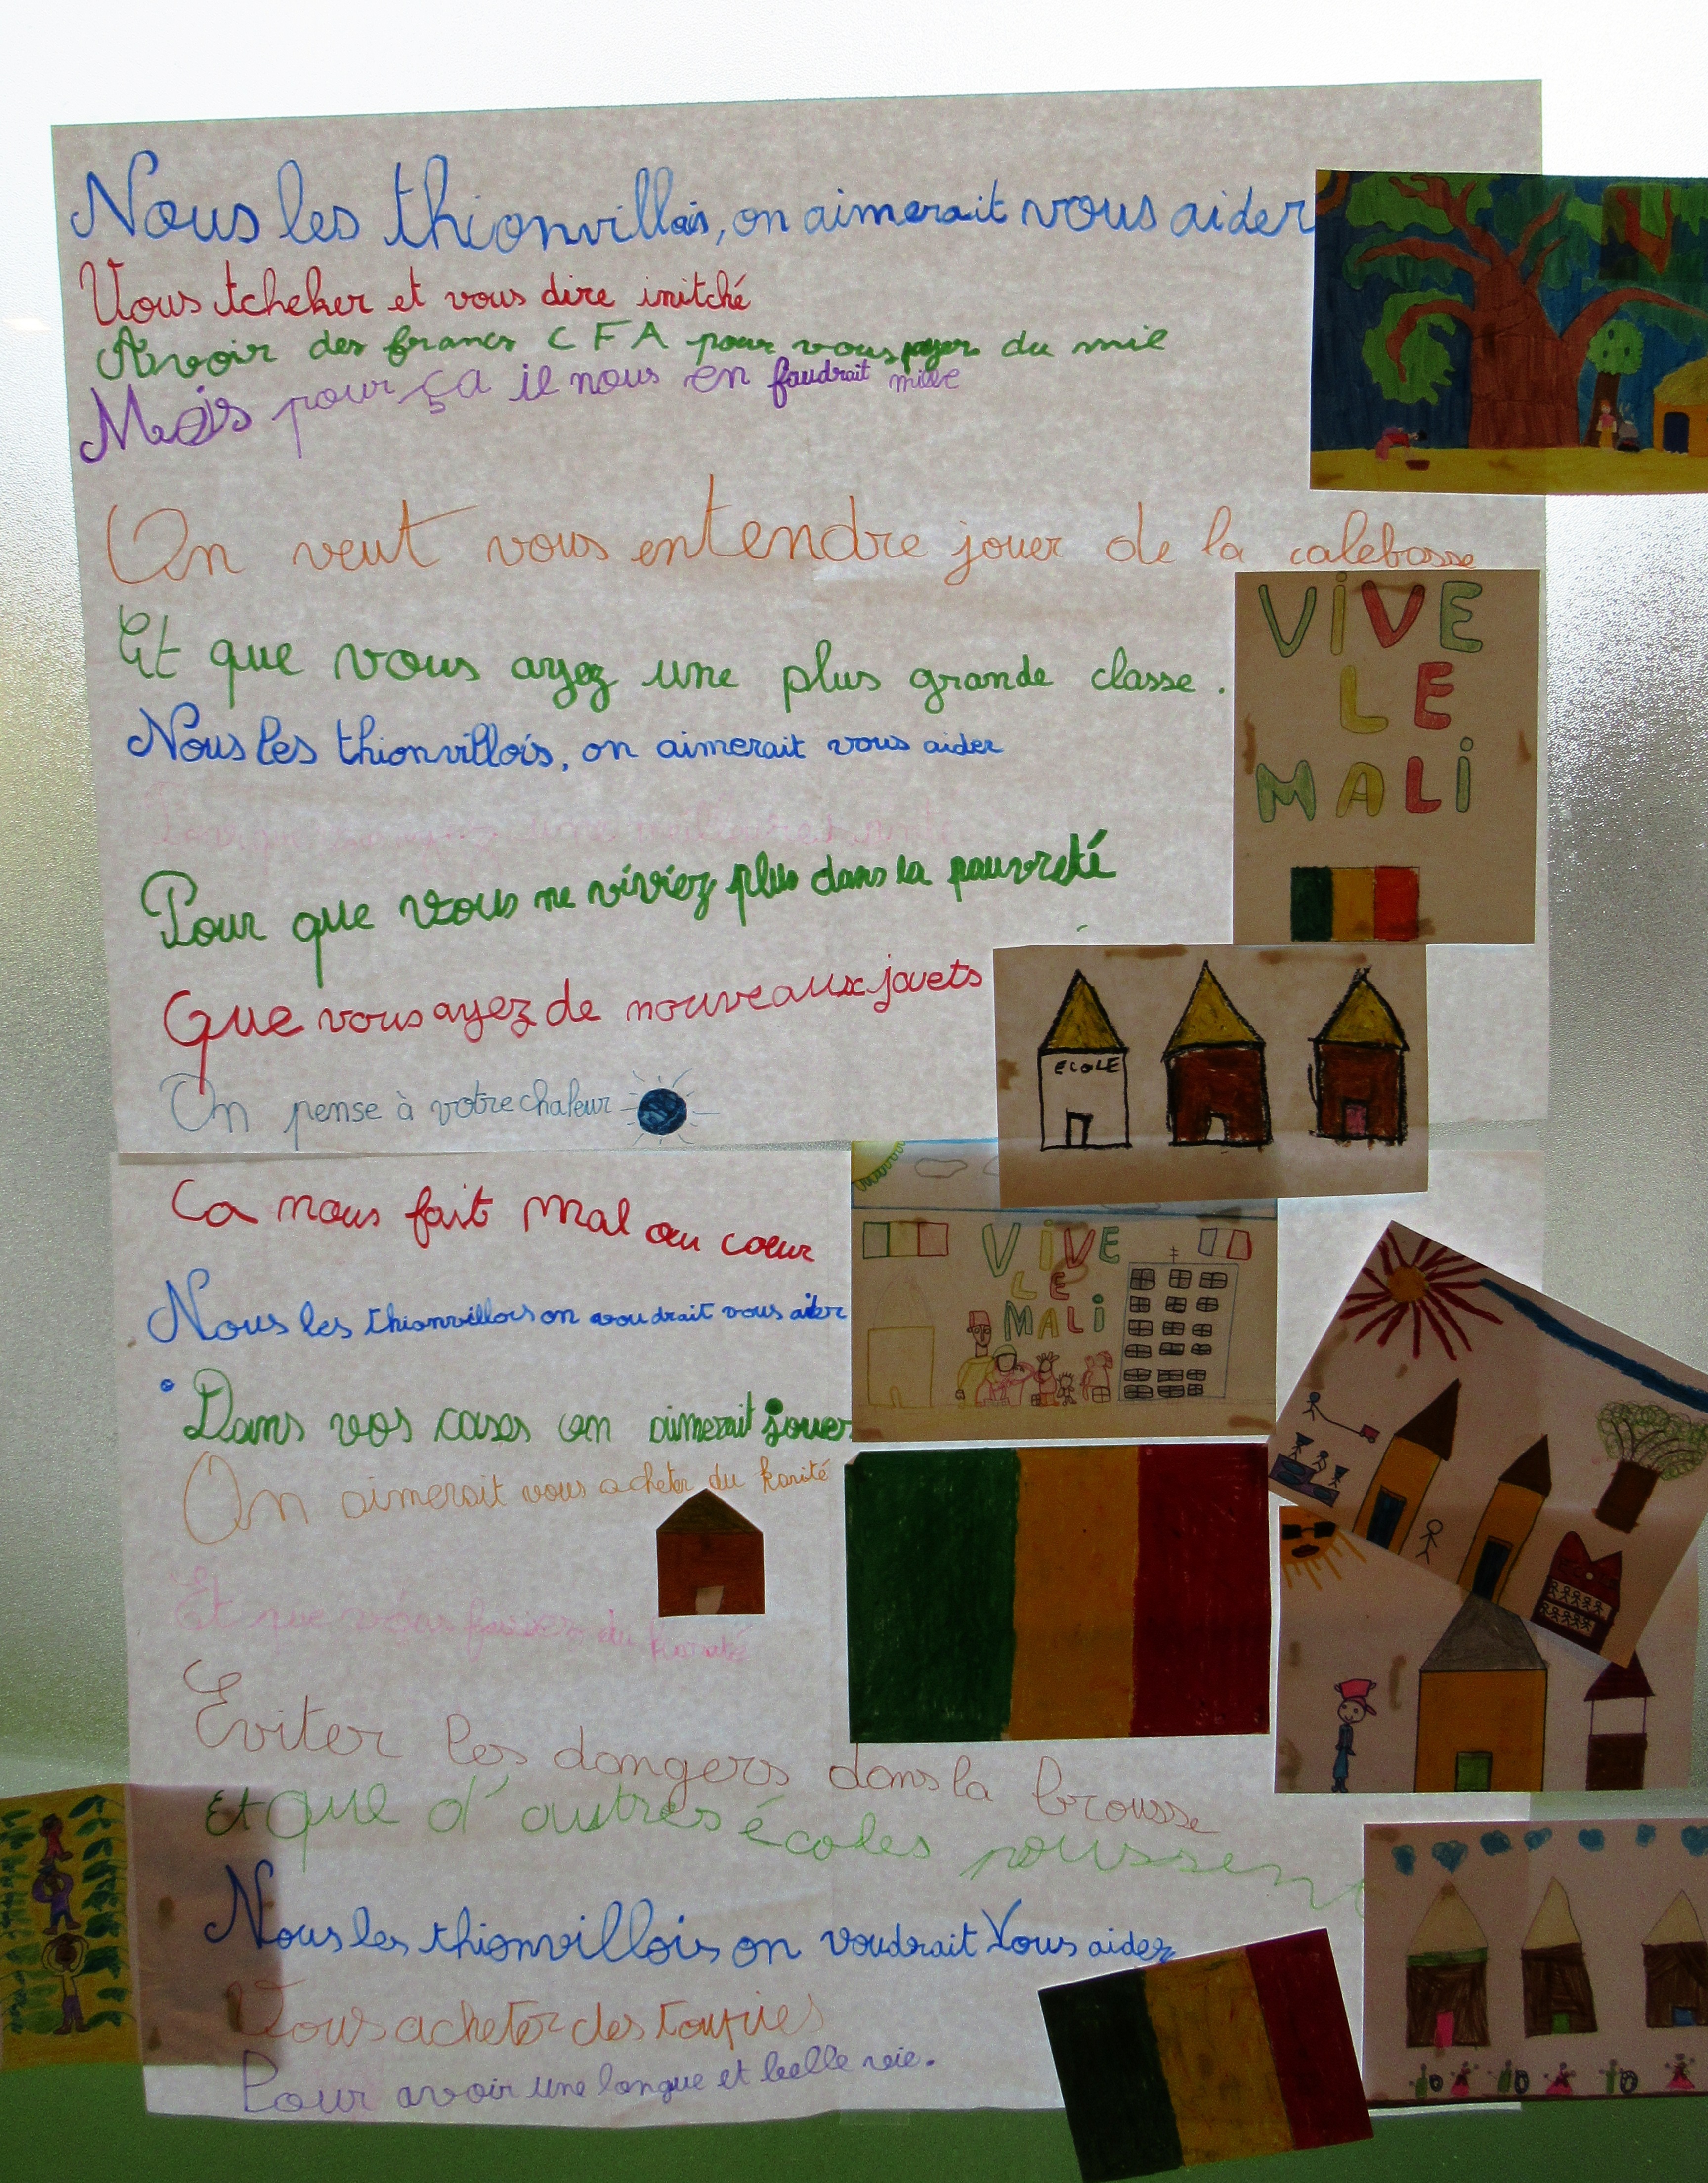 Nous les thionvillois, on aimerait vous aider
Vous tcheker et vous dire initché
Avoir des francs CFA pour vous payer du mil
Mais pour ça il nous en faudrait mille
On veut vous entendre jouer de la calebasse
Et que vous ayez une plus grande classe.
VIVE
LE
MALI
Nous les thionvillois, on aimerait vous aider
Pour que vous ne viviez plus dans la pauvreté
Que vous ayez de nouveaux jouets
ECOLE
On pense à votre chaleur
Ca nous fait mal au coeur
VIVE
LE
MALI
Nous les thionvillois on voudrait vous aider
Dans vos cases on aimerait jouer
On aimerait vous acheter du karité
Et que vous fassiez du karaté
Eviter les dangers dans la brousse
Et que d'autres écoles poussent
Nous les thionvillois on voudrait Vous aider
Vous acheter des toupies
Pour avoir une longue et belle vie.